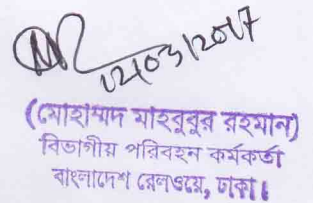 02/03/2017
(মোহাম্মদ মাহবুবুর রহমান)
বিভাগীয় পরিবহন কর্মকর্তা
বাংলাদেশ রেলওয়ে, ঢাকা।